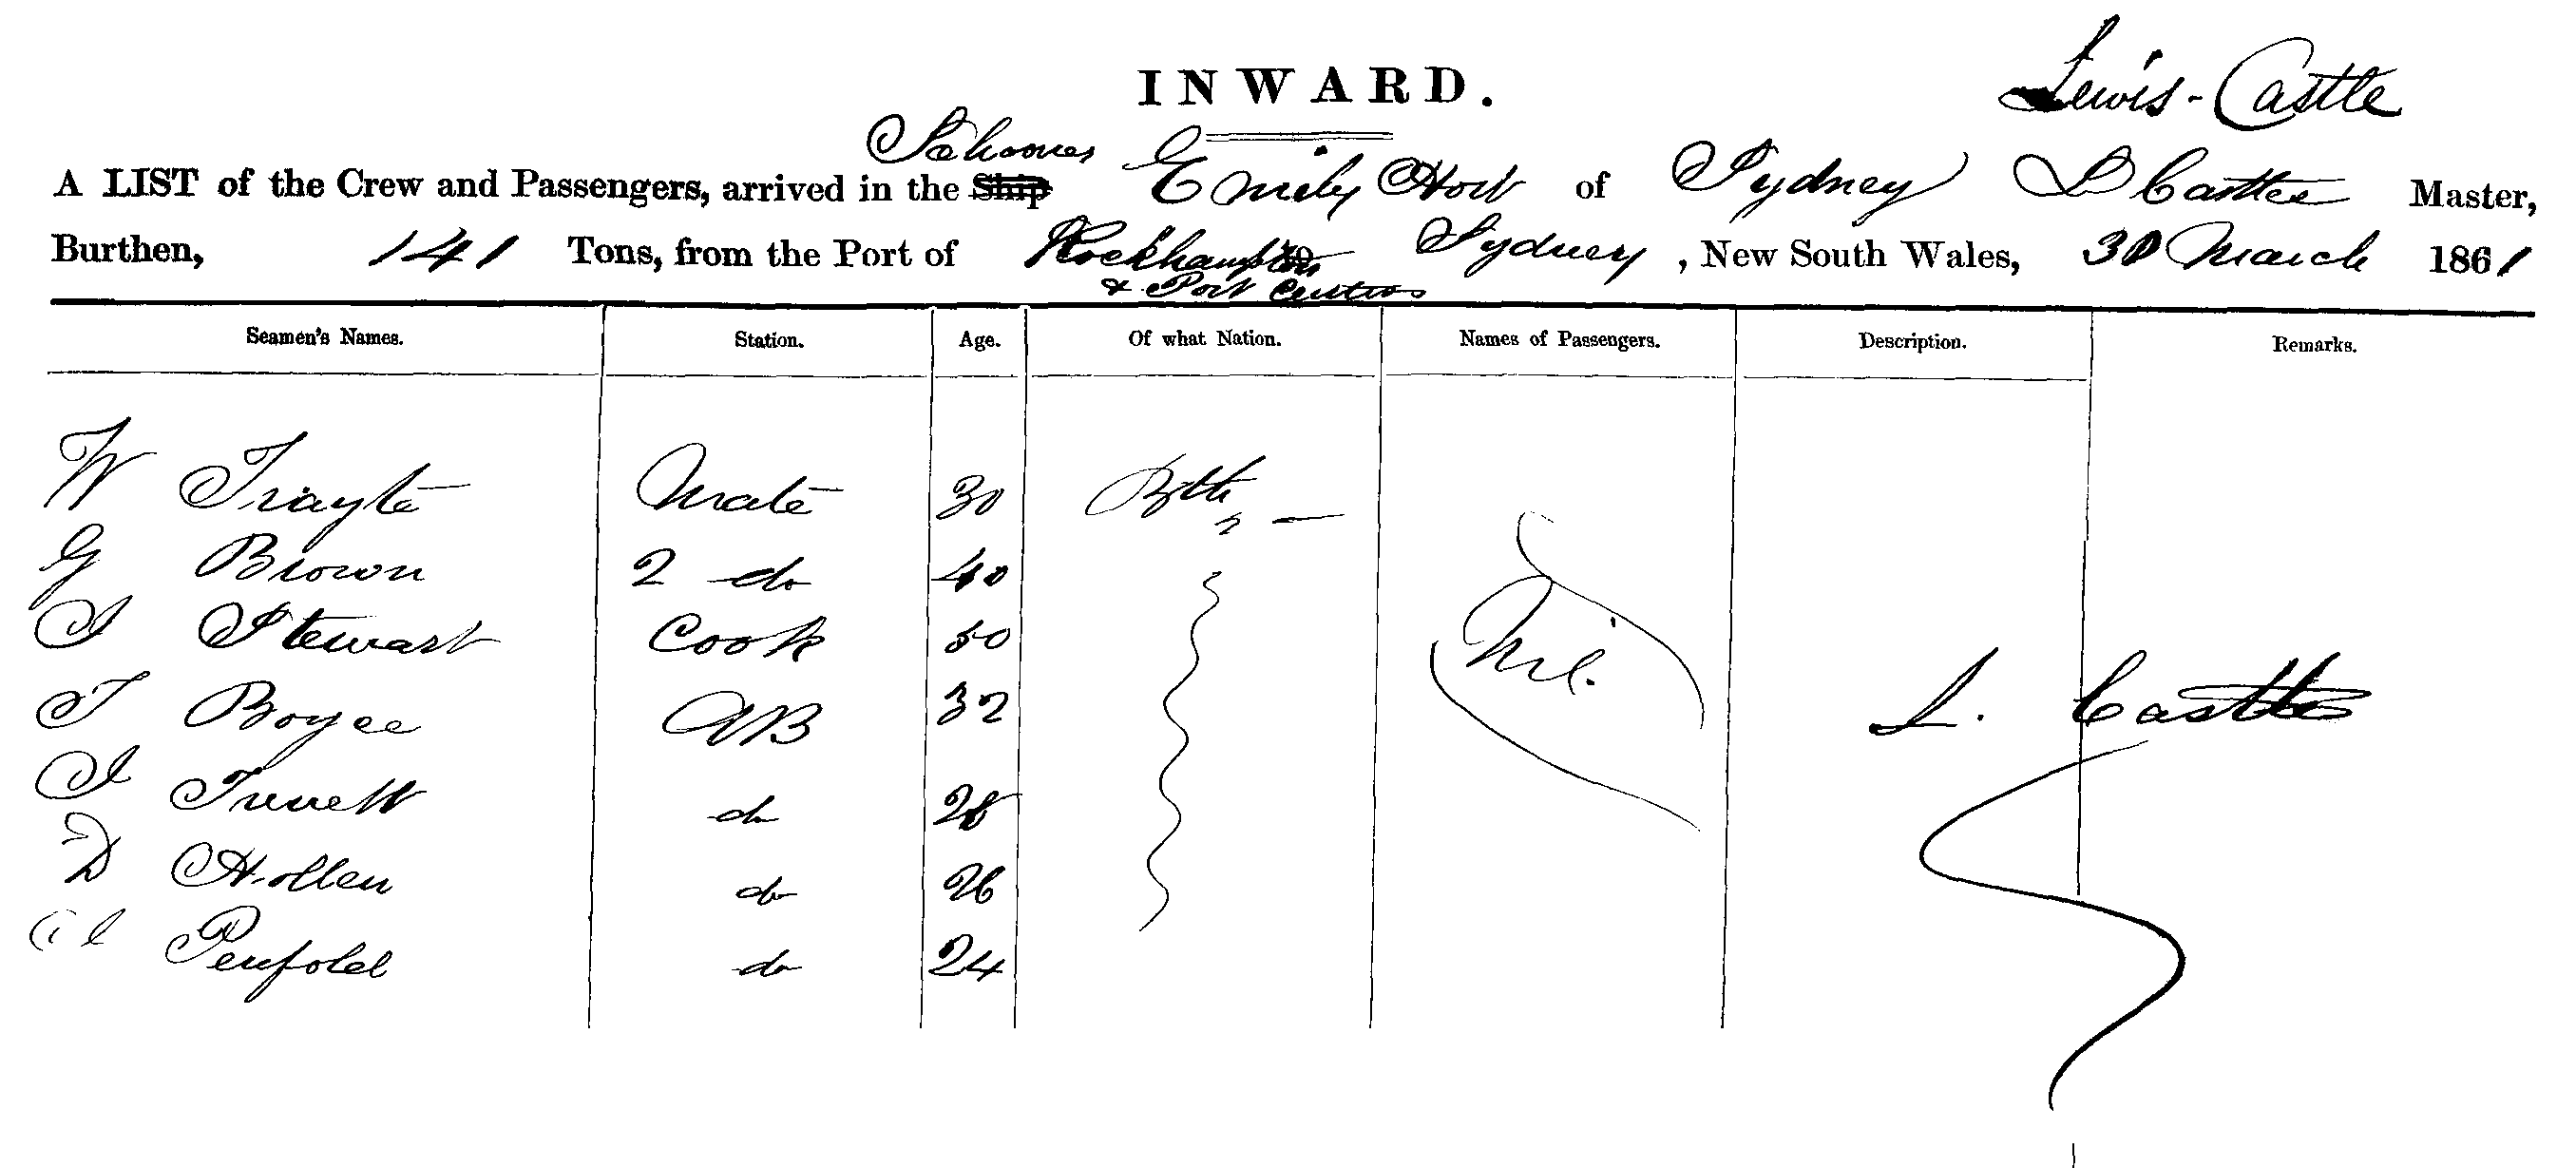 INWARD.
Lewis-Castle
Schooner
A LIST of the Crew and Passengers, arrived in the Ship Emily Hort of Sydney L Castle Master,
Burthen, 141 Tons, from the Port of Rockhampton to Sydney, New South Wales, 30 March 1861
& Port Curtis
Seamen's Names. Station. Age. Of what Nation. Names of Passengers. Description. Remarks.
W Mate 30
G Brown 2 do 40
J Stewart Cook 50
T Boyce AB 32 Nil. L. Castle
J do 28
D Hollen do 26
Penfold do 24